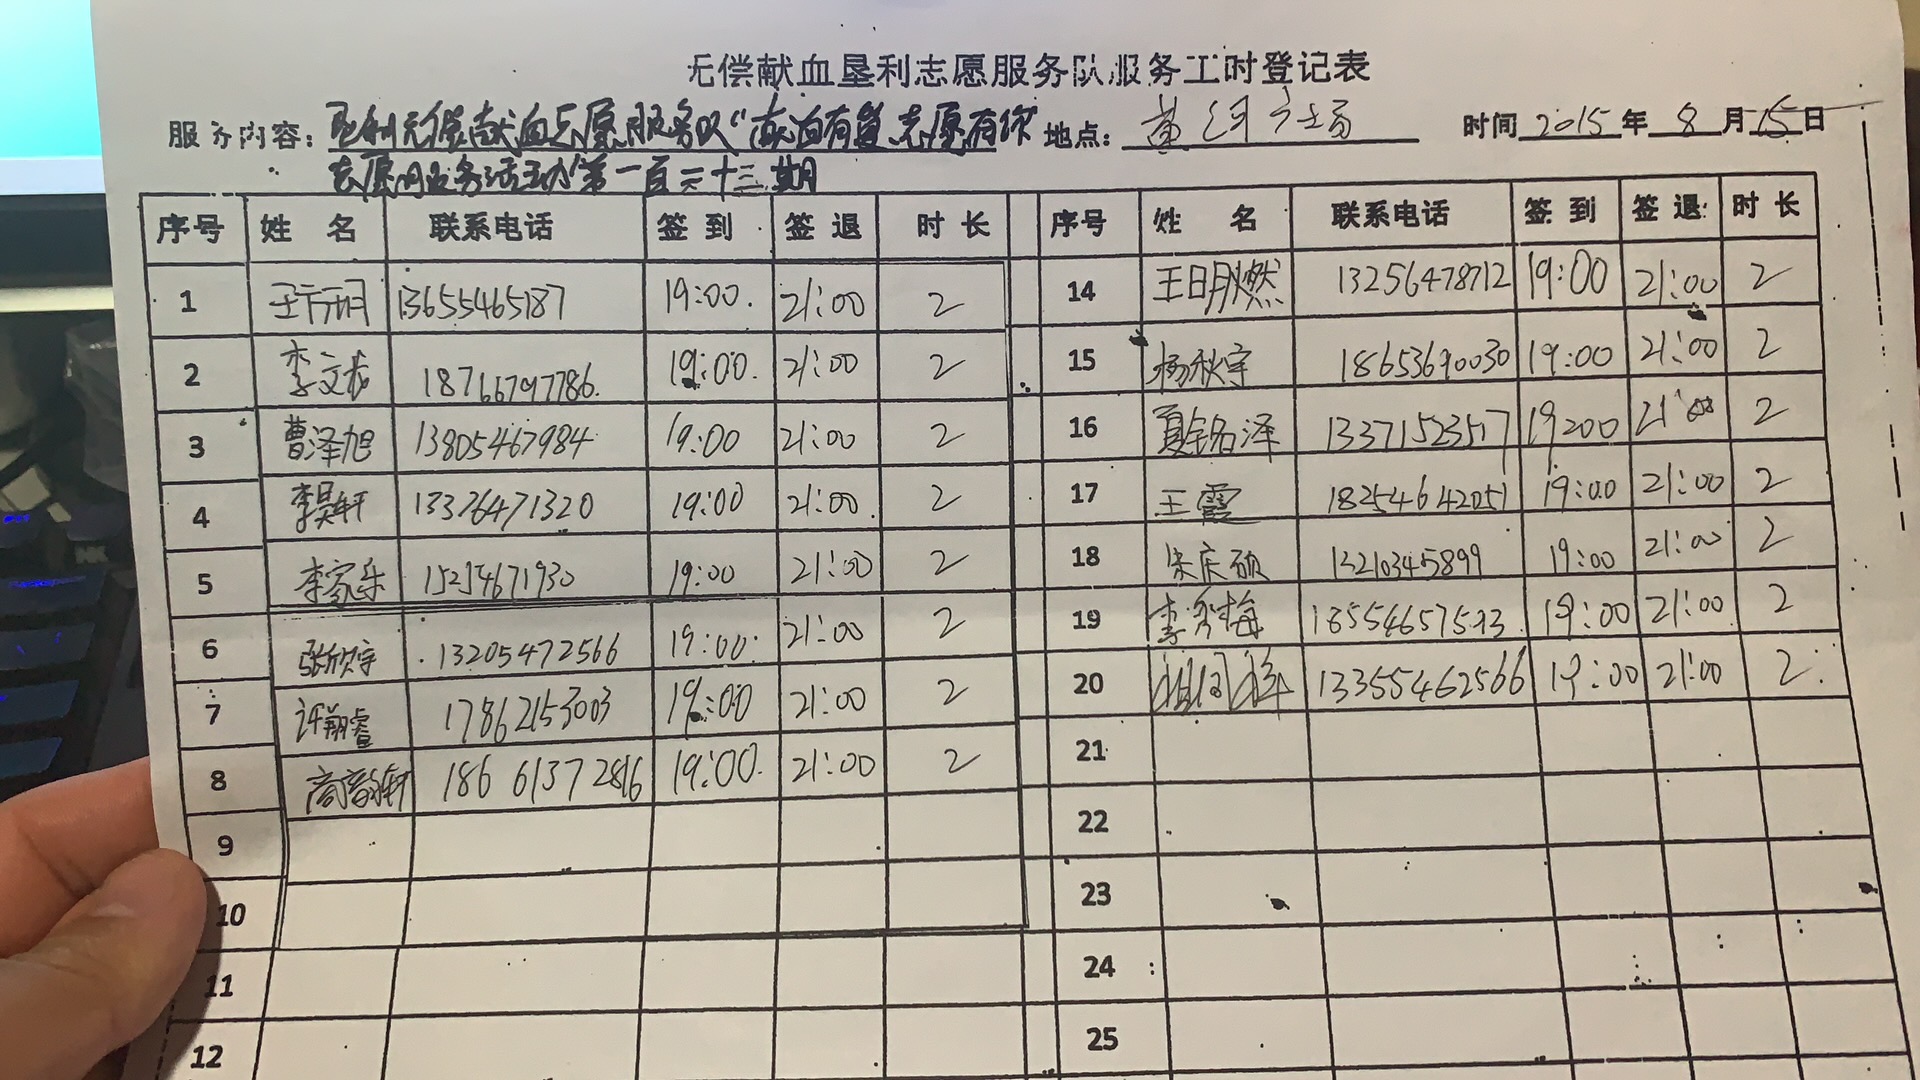 无偿献血垦利志愿服务队服务工时登记表
服务内容：垦利无偿献血志愿服务队“献血有益 志愿有你 地点： 黄河广场 时间 2015 年 8 月 15 日
志愿服务活动”第一百三十三期
序号 姓 名 联系电话 签 到 签 退 时 长 序号 姓 名 联系电话 签 到 签 退 时 长
1 13655465187 19:00 21:00 2 14 王日月燃 13256478712 19:00 21:00 2
2 李文龙 18766797786 19:00 21:00 2 15 杨秋宇 18653690030 19:00 21:00 2
3 曹泽旭 13805467984 19:00 21:00 2 16 夏铭泽 13371523517 19:00 21:00 2
4 李昊轩 13376471320 19:00 21:00 2 17 王霞 18254642051 19:00 21:00 2
5 李家乐 15254671930 19:00 21:00 2 18 宋庆硕 13210345899 19:00 21:00 2
6 张欣宇 13205472566 19:00 21:00 2 19 李秀梅 19:00 21:00 2
7 许翔睿 17862153003 19:00 21:00 2 20 13355462566 19:00 21:00 2
8 18661372816 19:00 21:00 2 21
9 22
10 23
11 24
12 25